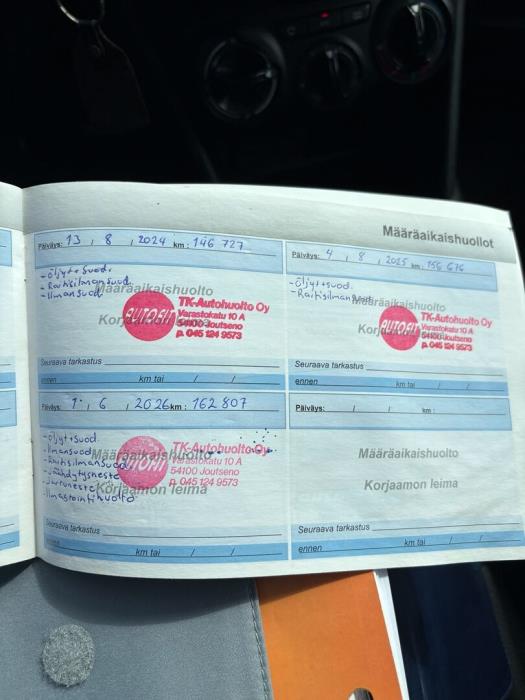 Määräaikaishuollot
Päiväys: 13 / 8 / 2024 km: 146 727
- öljyt+suod.
- Raitisilmansuod.
- Ilmansuod.
Määräaikaishuolto
Korjaamon leima
AUTOFIT
TK-Autohuolto Oy
Varastokatu 10 A
54100 Joutseno
p. 045 124 9573
Seuraava tarkastus
ennen km tai / /
Päiväys: 4 / 8 / 2025 km: 156 676
- öljyt+suod.
- Raitisilmansuod.
Määräaikaishuolto
Korjaamon leima
AUTOFIT
TK-Autohuolto Oy
Varastokatu 10 A
54100 Joutseno
p. 045 124 9573
Seuraava tarkastus
ennen km tai / /
Päiväys: 1 / 6 / 2026 km: 162 807
- öljyt+suod.
- Ilmansuod.
- Raitisilmansuod.
- Jäähdytysneste
- Jarruneste
- Ilmastointihuolto
Määräaikaishuolto
Korjaamon leima
TK-Autohuolto Oy
Varastokatu 10 A
54100 Joutseno
p. 045 124 9573
Seuraava tarkastus
ennen km tai / /
Päiväys: / / km:
Määräaikaishuolto
Korjaamon leima
Seuraava tarkastus
ennen km tai / /